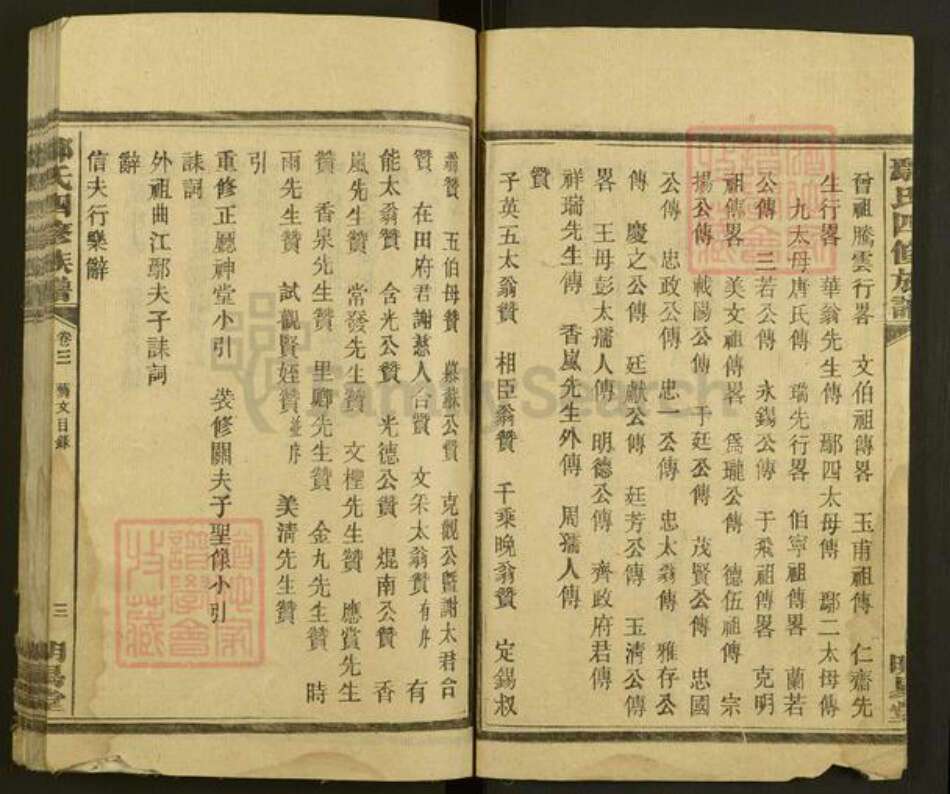 鄢氏四修族譜
晉祖騰雲行畧 文伯祖傳畧 玉甫祖傳 仁齋先
生行畧 華翁先生傳 鄢四太母傳 鄢二太母傳
九太母唐氏傳 瑞先行畧 伯寧祖傳畧 蘭若
公傳 三若公傳 永錫公傳 于飛祖傳畧 克明
祖傳畧 美文祖傳畧 爲瓏公傳 德伍祖傳 宗
揚公傳 載陽公傳 于廷公傳 茂賢公傳 忠國
公傳 忠政公傳 忠一公傳 忠太翁傳 雅存公
傳 慶之公傳 廷獻公傳 廷芳公傳 玉清公傳
畧 王母彭太孺人傳 明德公傳 齊政府君傳
祥瑞先生傳 香嵐先生外傳 周孺人傳
贊
子英五太翁贊 相臣翁贊 千乘晚翁贊 定錫叔
翁贊 五伯母贊 慕蘇公贊 克觀公暨謝太君合
贊 在田府君謝慈人合贊 文釆太翁贊有序 有
能太翁贊 含光公贊 光德公贊 焜南公贊 香
嵐先生贊 常發先生贊 文樫先生贊 應賞先生
贊 香泉先生贊 里卿先生贊 金九先生贊 時
雨先生贊 試觀賢姪贊並序 美清先生贊
引
重修正廳神堂小引 裝修關夫子聖像小引
誄詞
外祖曲江鄢夫子誄詞
辭
信夫行樂辭
氏四修族譜
卷三 藝文目錄
三
明